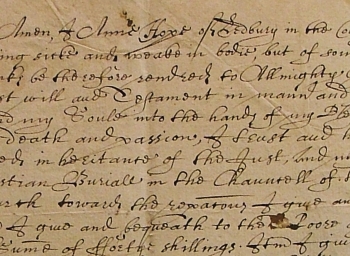 Amen, I Anne Hope of Sedbury in the Co
ing sicke and weake in bodie, but of sou
be therefore rendred to Allmighty
st will and Testament in mann and
nd my Soule into the hands of my
death and passion, I trust and h
ed inheritance of the Just, And m
stian Buriall in the Chauncell of
urch towards the reparaons I give an
I give and bequeath to the Poore
Sume of fforthe shillings. Itm I giv